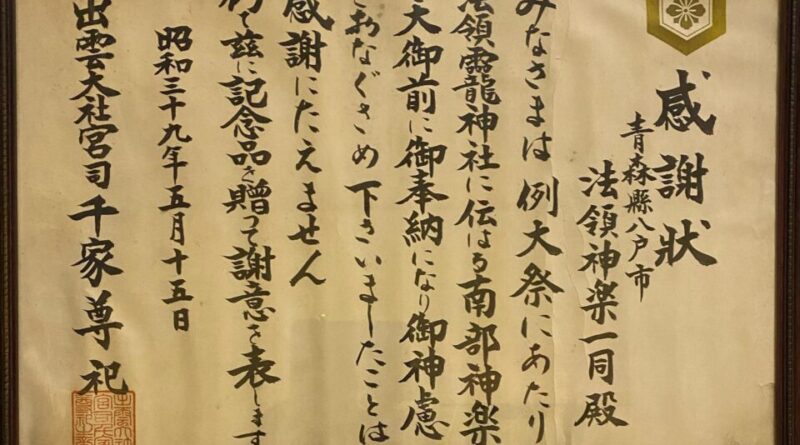 感謝狀
青森縣八戸市
法領神楽一同殿
みなさまは例大祭にあたり
法領龗神社に伝はる南部神楽
大御前に御奉納になり御神慮
をおなぐさめ下さいましたことは
感謝にたえません
て茲に記念品を贈つて謝意を表します
昭和三十九年五月十五日
出雲大社宮司千家尊祀